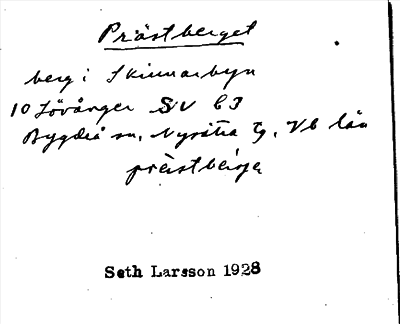 Prästberget
berg i Skinnarbyn
10 Lövånger SV C3
Bygdeå sn, Nysätra tg, Vb län
prästberje
Seth Larsson 1928